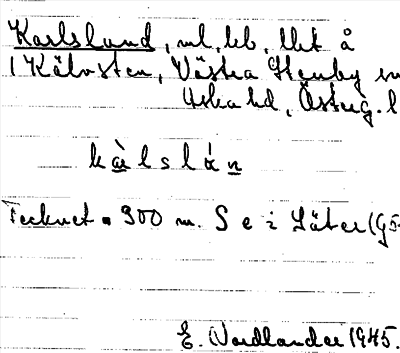 Karlslund, ml, lbl, tlbt å
1 Kälvsten, Västra Stenby sn
Aska hd, Österg. l
kàlslún
Tecknet = 300 m. S e i Säter (G5
E. Nordlander 1945.